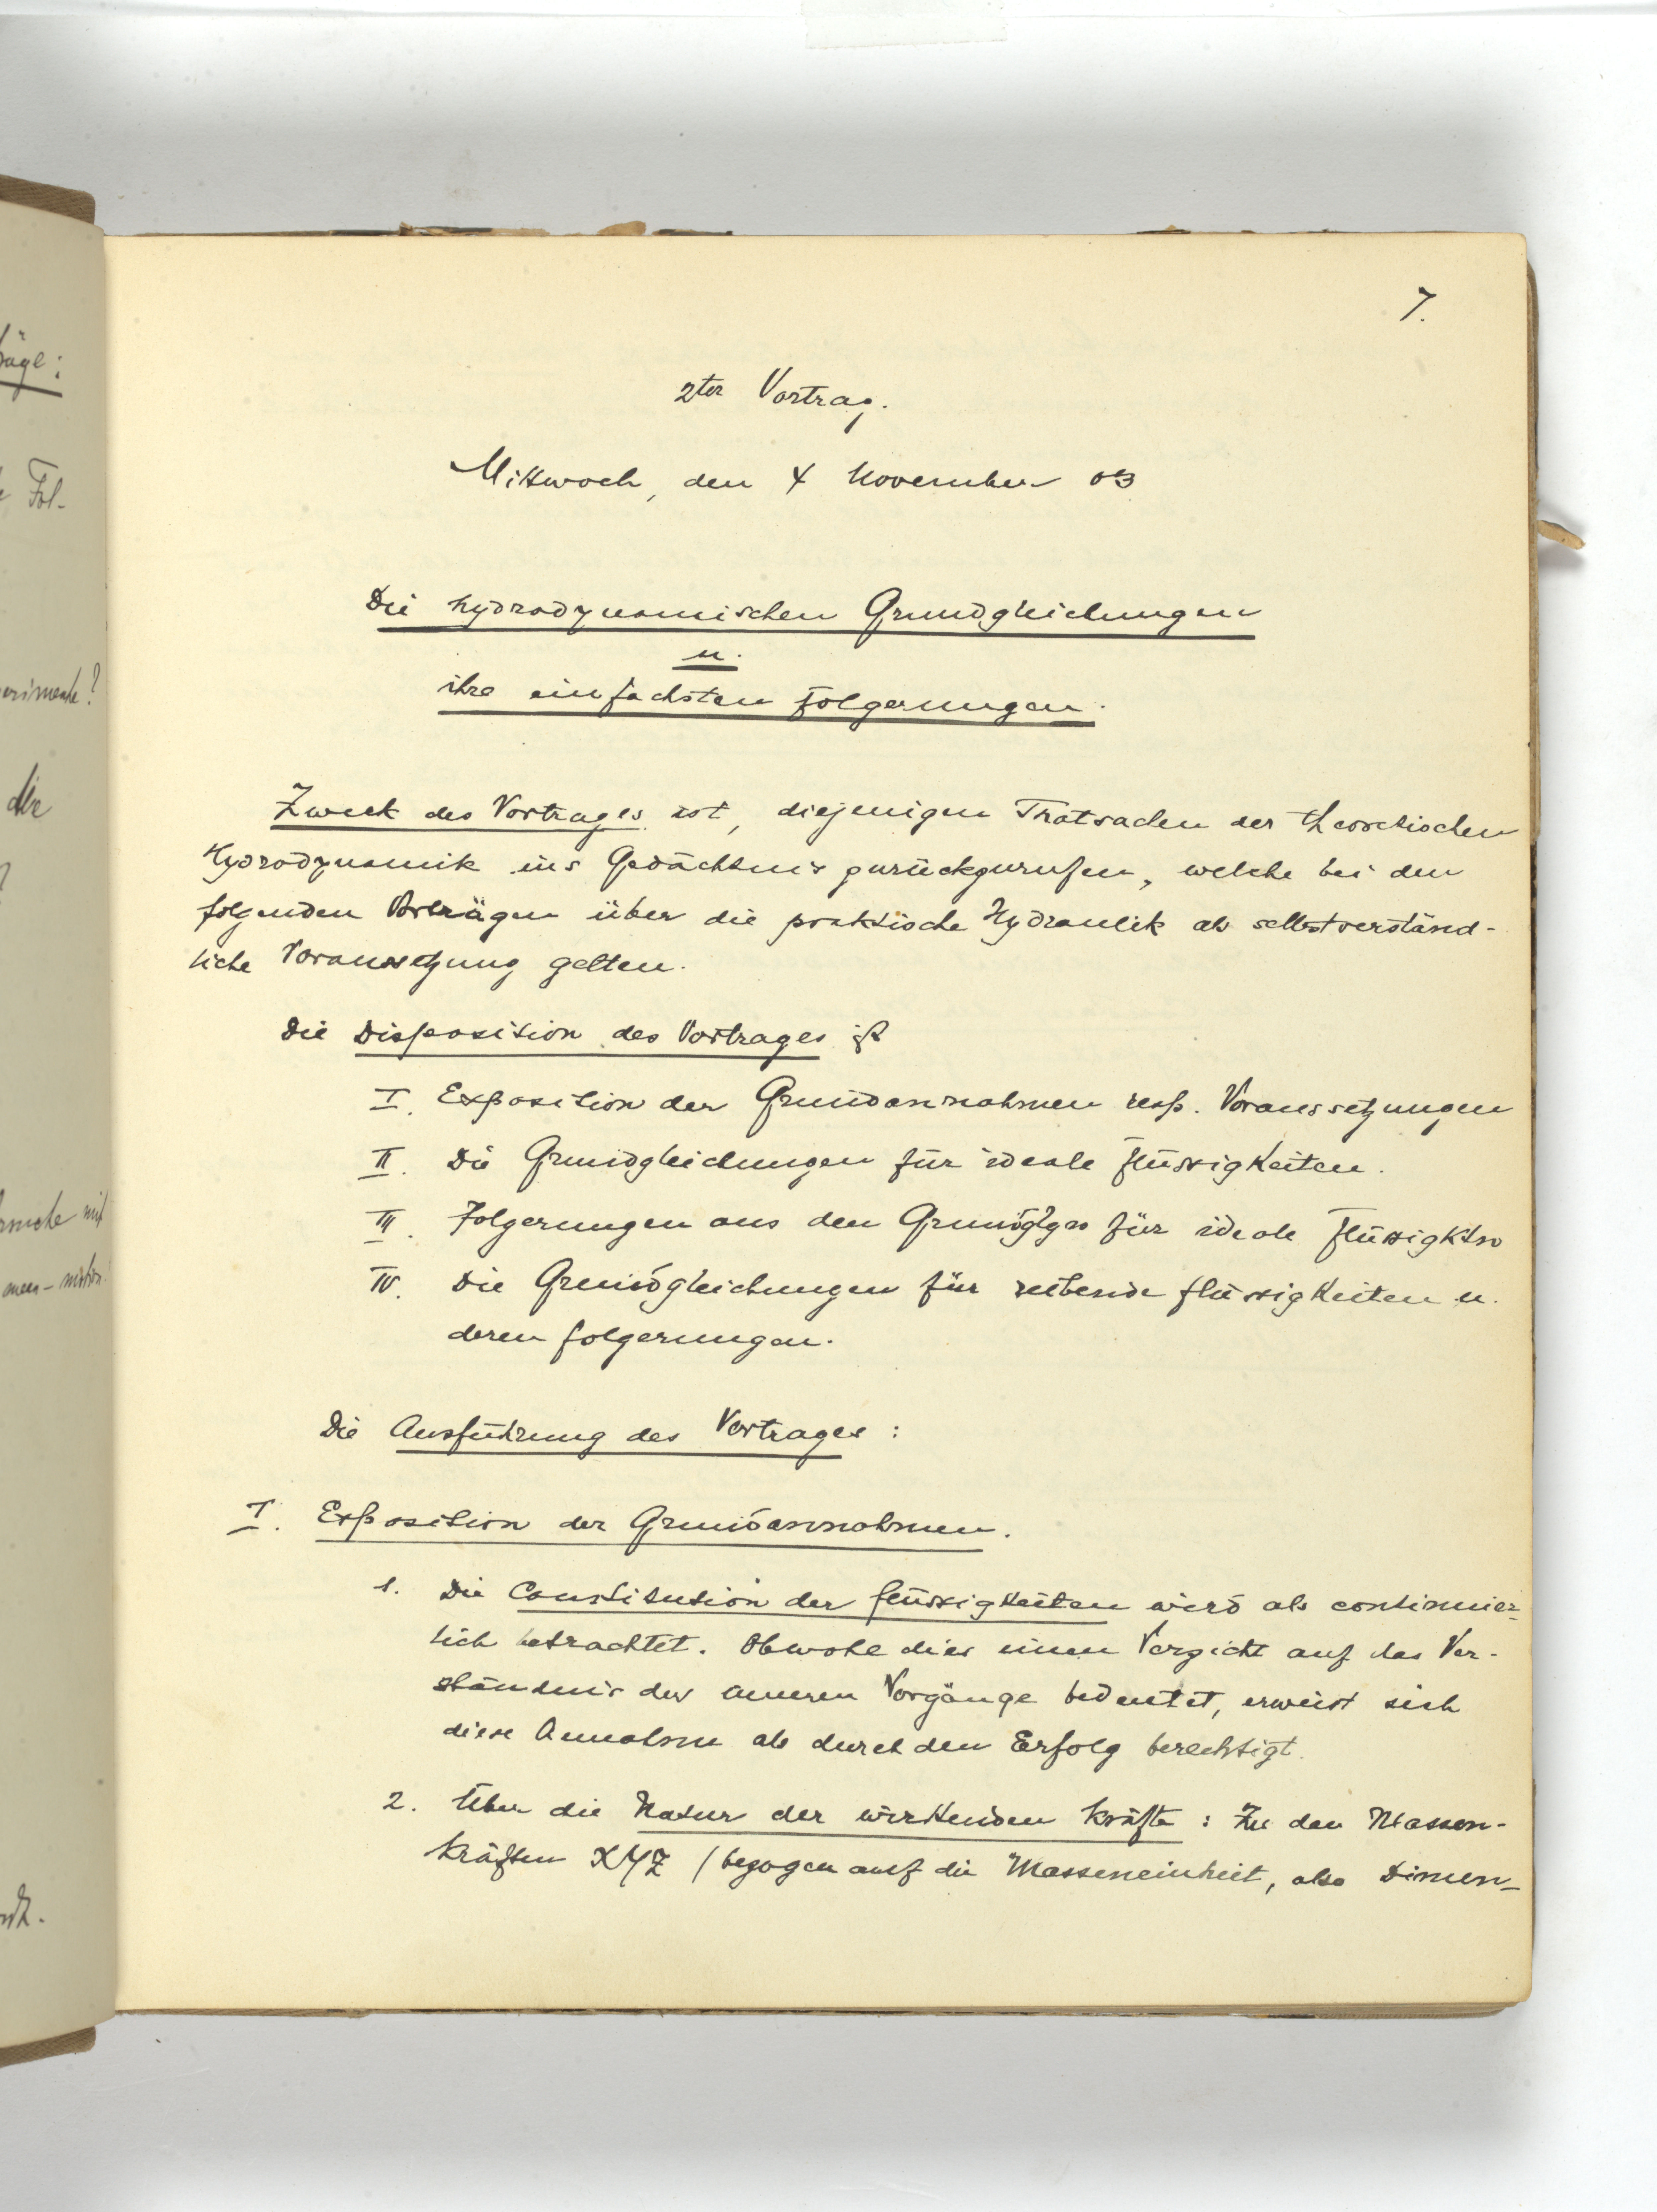 7.
2ter Vortrag.
Mittwoch, den 4 November 03
Die hydrodynamischen Grundgleichungen
u.
ihre einfachsten Folgerungen.
Zweck des Vortrages ist, diejenigen Thatsachen der theoretischen
Hydrodynamik ins Gedächtnis zurückzurufen, welche bei den
folgenden Vorträgen über die praktische Hydraulik als selbstverständ-
liche Voraussetzung gelten.
Die Disposition des Vortrages ist
I. Exposition der Grundannahmen resp. Voraussetzungen
II. Die Grundgleichungen für ideale Flüssigkeiten.
III. Folgerungen aus den Grundglgen für ideale Flüssigktn
IV. Die Grundgleichungen für reibende Flüssigkeiten u.
deren Folgerungen.
Die Ausführung des Vortrages :
I. Exposition der Grundannahmen.
1. Die Constitution der Flüssigkeiten wird als continuier=
lich betrachtet. Obwohl dies einen Verzicht auf das Ver-
ständnis der inneren Vorgänge bedeutet, erweist sich
diese Annahme als durch den Erfolg berechtigt.
2. Über die Natur der wirkenden Kräfte : Zu den Massen-
kräften XYZ / bezogen auf die Masseneinheit, also Dimen-
räge :
Fol-
die